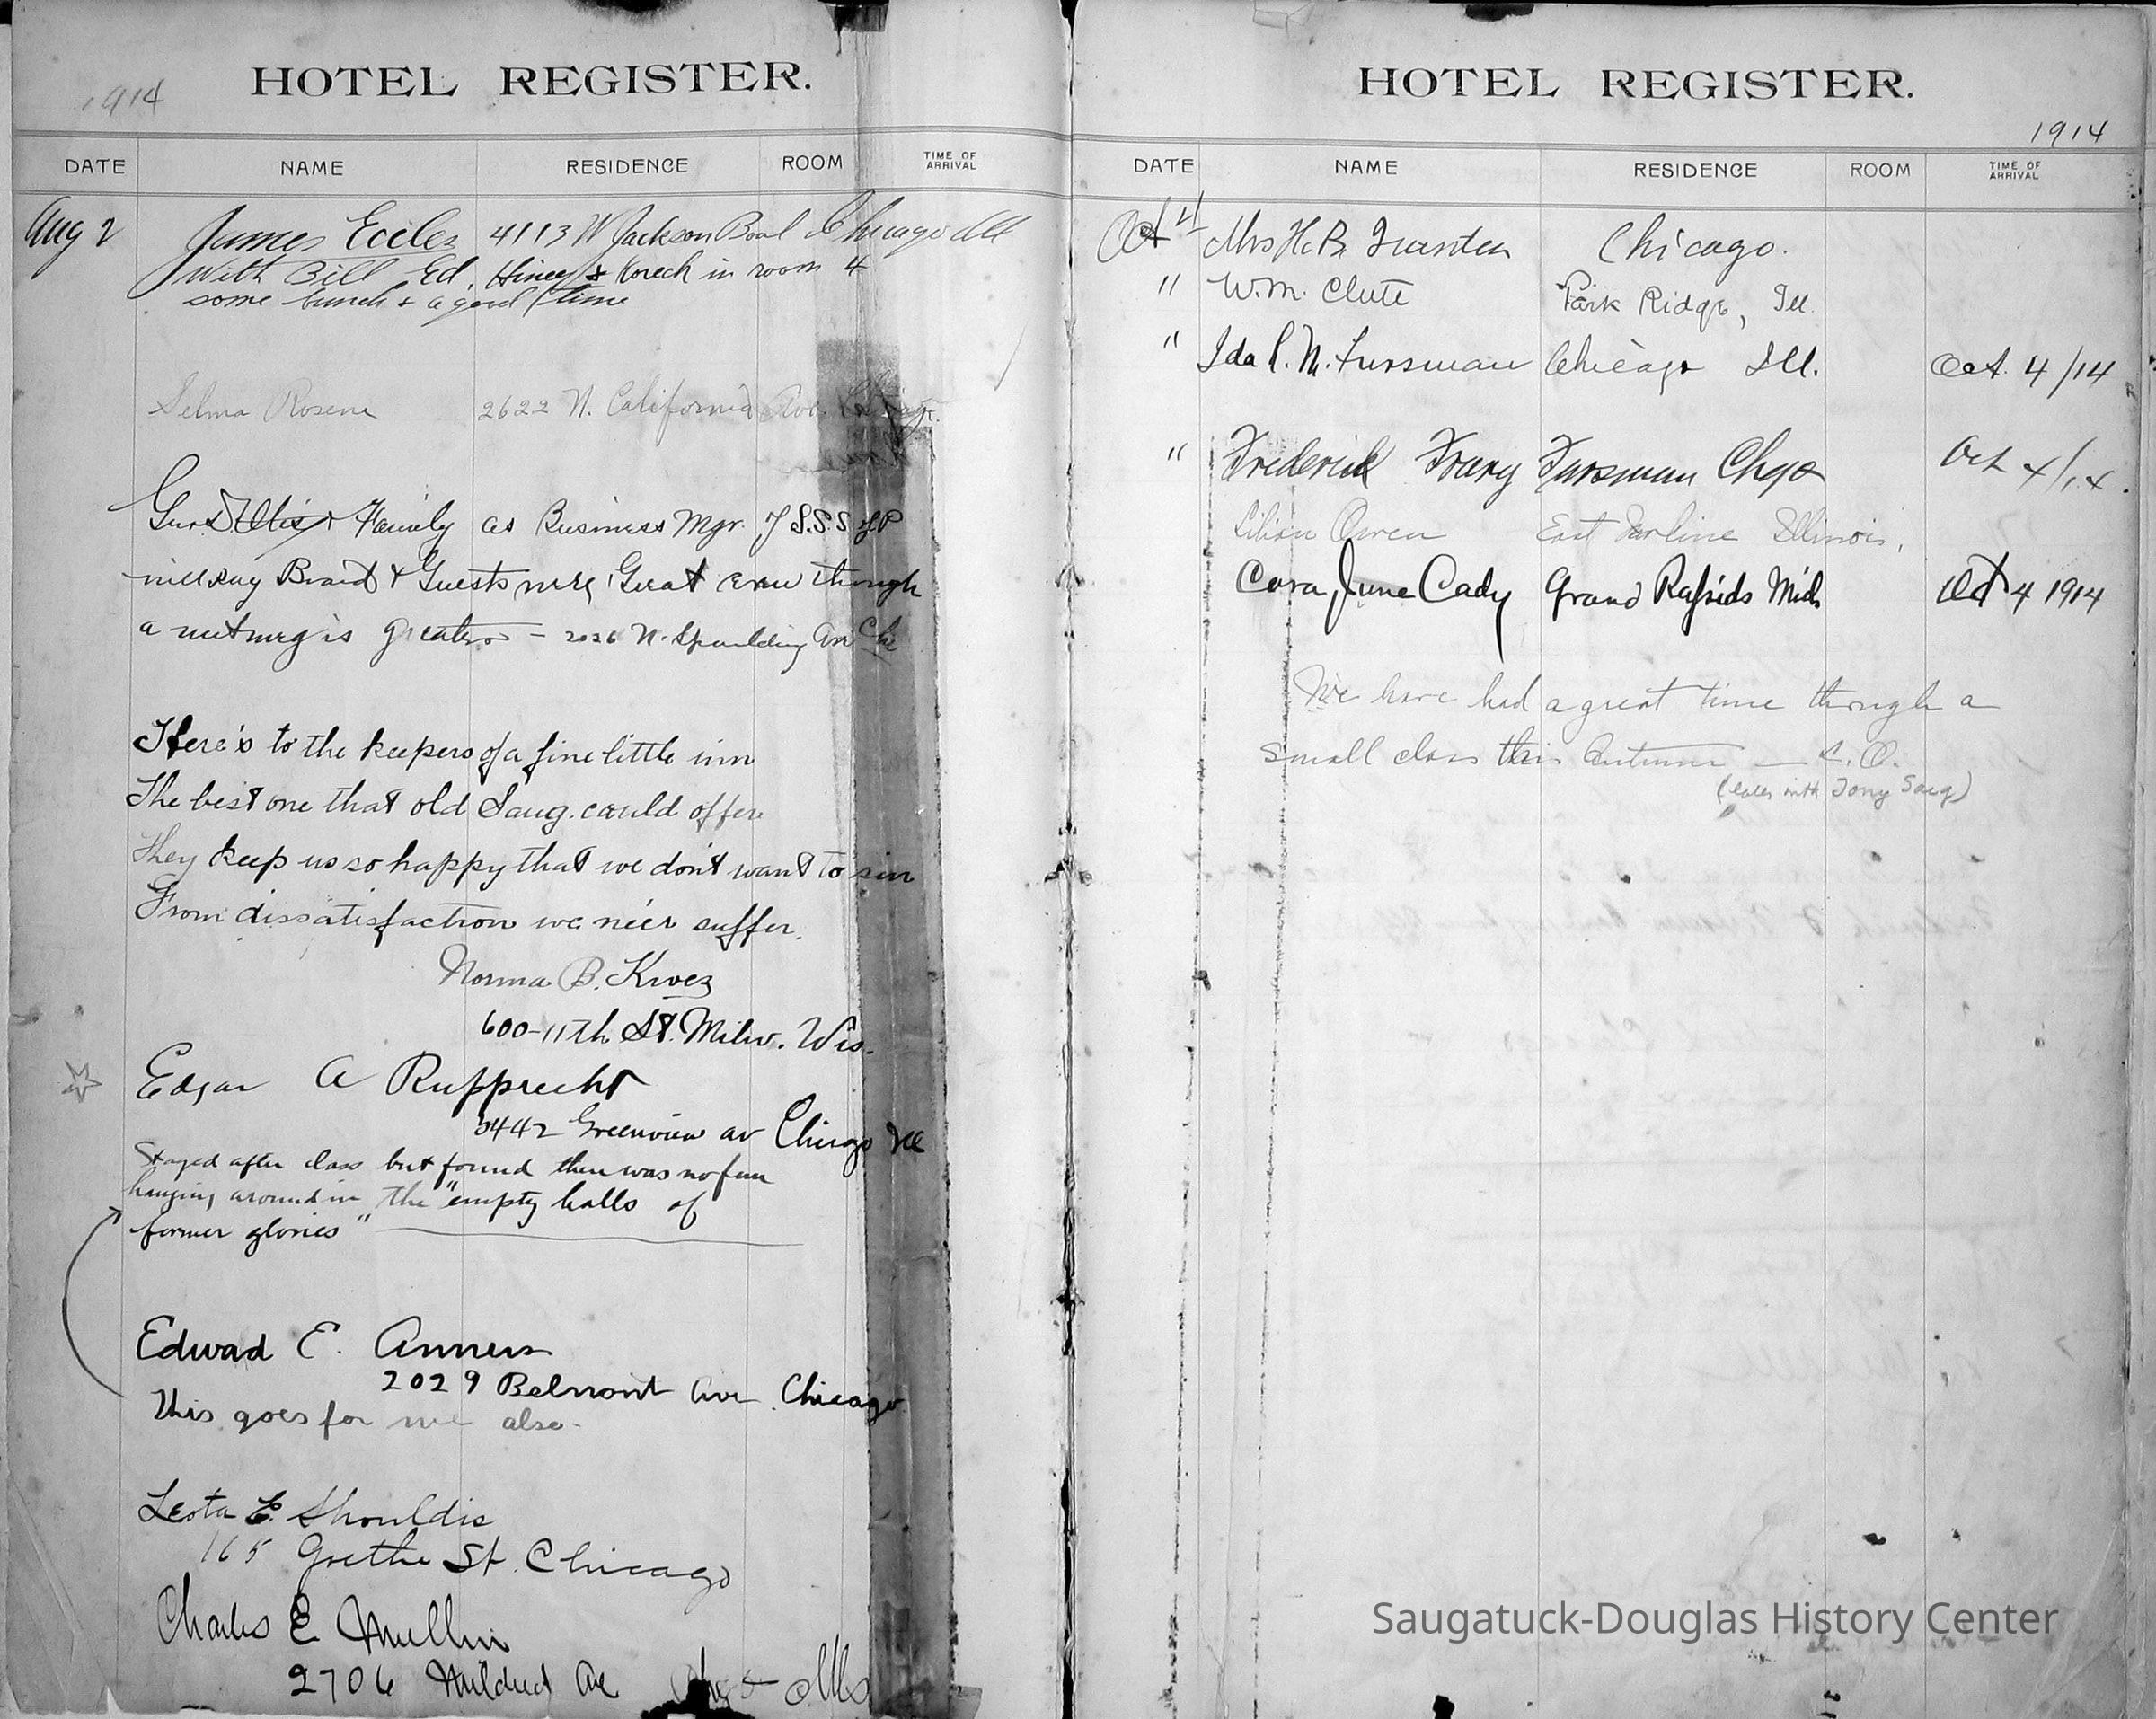 1914
HOTEL REGISTER.
DATE NAME RESIDENCE ROOM TIME OF ARRIVAL
Aug 2 James Eccles 4113 W Jackson Boul Chicago Ill
With Bill Ed, & in room 4
some bunch & a good time
Selma Rosene 2622 N. California Ave. Chicago
& Family as Business Mgr. of S.S.S. of P
Board & Guests were Great even though
a nutmeg is greater - 2026 N. Spaulding Av Chi
Here's to the keepers of a fine little inn
The best one that old Saug. could offer
They keep us so happy that we don't want to sin
From dissatisfaction we ne'er suffer.
Norma B.
600-11th St. Milw. Wis.
Edgar A Rupprecht
3442 Greenview av Chicago Ill
Stayed after class but found there was no fun
hanging around in the "empty halls of
former glories"
Edward E. Anners
2029 Belmont Ave. Chicago
This goes for me also-
Leota E. Shouldis
165 Goethe St. Chicago
Charles E Mullin
2706 Mildred Ave Chgo Ills
HOTEL REGISTER.
1914
DATE NAME RESIDENCE ROOM TIME OF ARRIVAL
Oct 4 Mrs H. B. Chicago.
" W.M. Clute Park Ridge, Ill.
" Ida M. Fursman Chicago Ill. Oct. 4/14
" Frederick Frary Fursman Chgo Oct 4/14.
Lilian Owen East Illinois,
Cora June Cady Grand Rapids Mich Oct 4 1914
We have had a great time though a
small class this Autumn — L. O.
(later with Tony Sarg)
Saugatuck-Douglas History Center